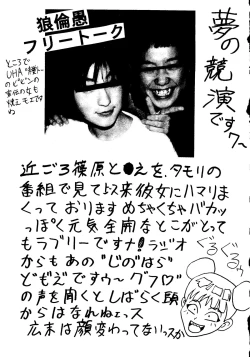 夢の競演
ですワ〜
狼倫愚
フリートーク
ところで
UHA
近ごろ篠原と●えを、タモリの
番組で見て以来彼女にハマりま
くっておりますめちゃくちゃバカッ
っぽく元気全開なとこがとって
もラブリーですナ!ラジオ
からもあの"じのはら
どもえですゥ〜グフ♡"
の声を聞くとしばらく頭
からはなれねェス
広末は顔変わってないッスか
ぐるぐる